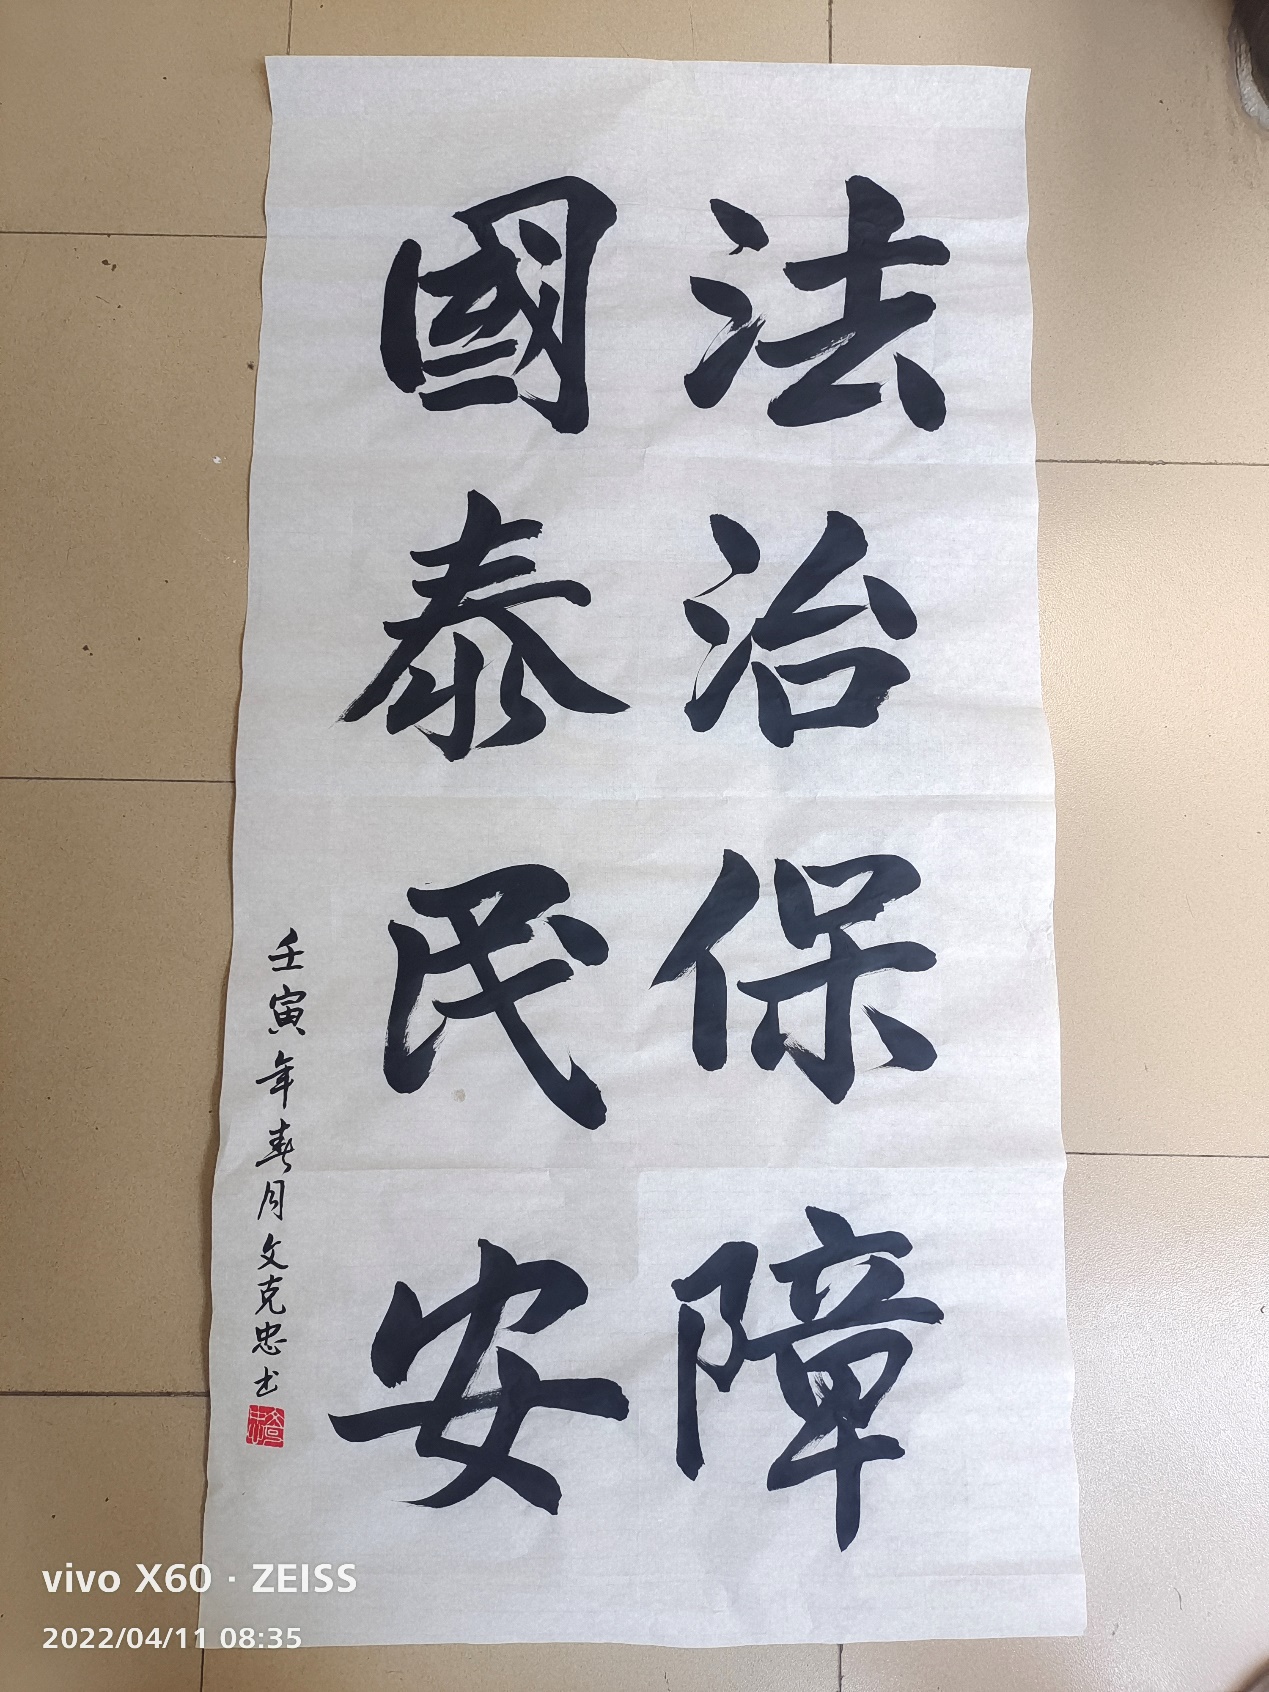 法治保障
國泰民安
壬寅年春月文克忠书
vivo X60 · ZEISS
2022/04/11 08:35